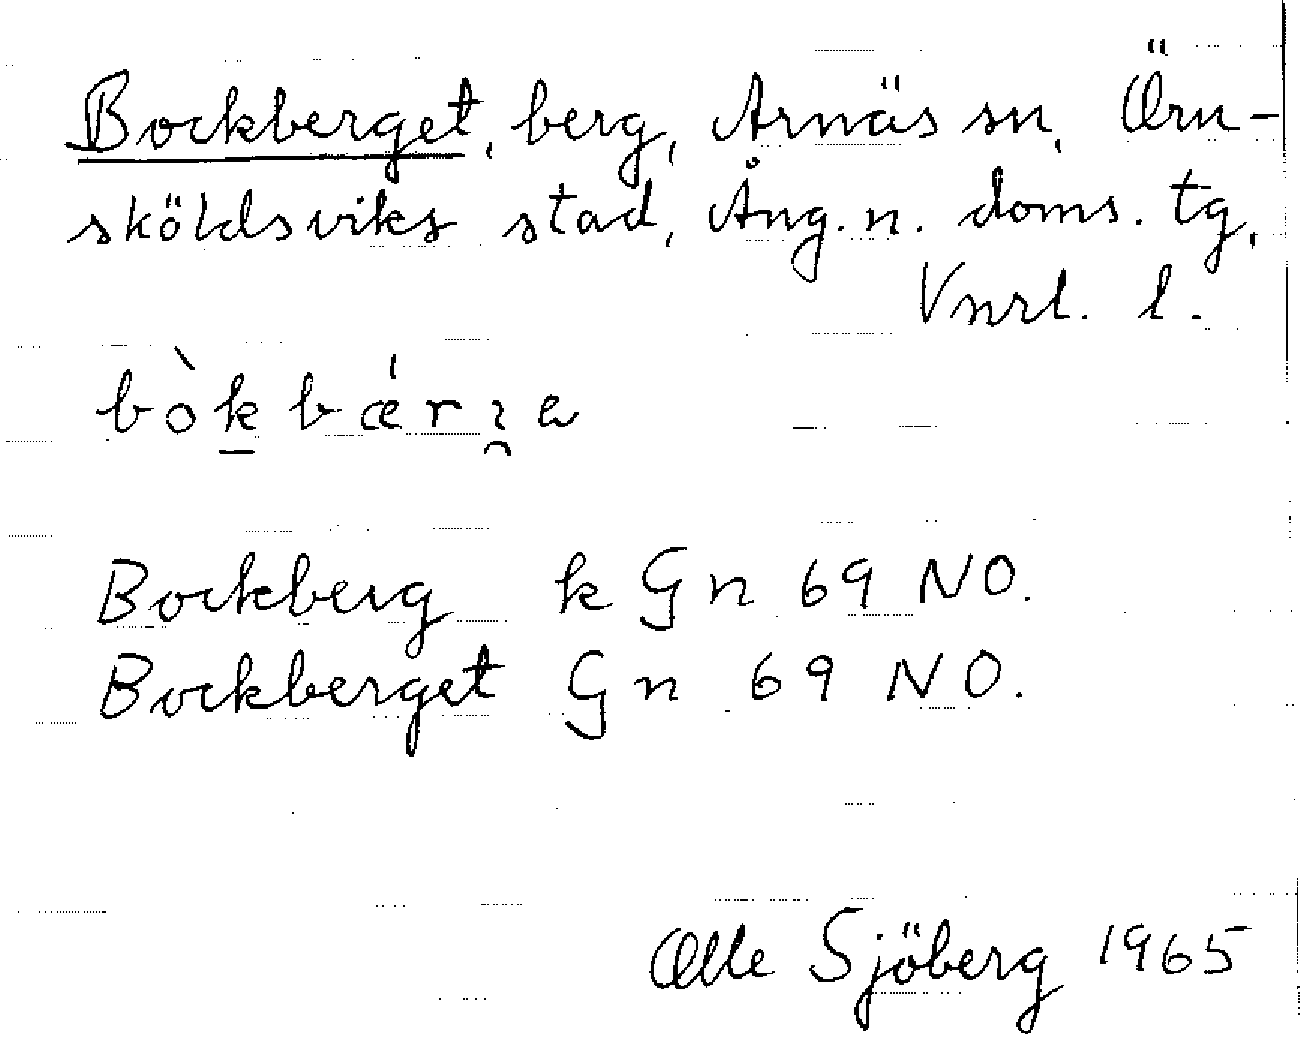 Bockberget, berg, Arnäs sn, Örn-
sköldsviks stad, Ång. n. doms. tg,
Vnrl. l.
bòk bǽr
Bockberg k Gn 69 NO.
Bockberget Gn 69 NO.
Olle Sjöberg 1965